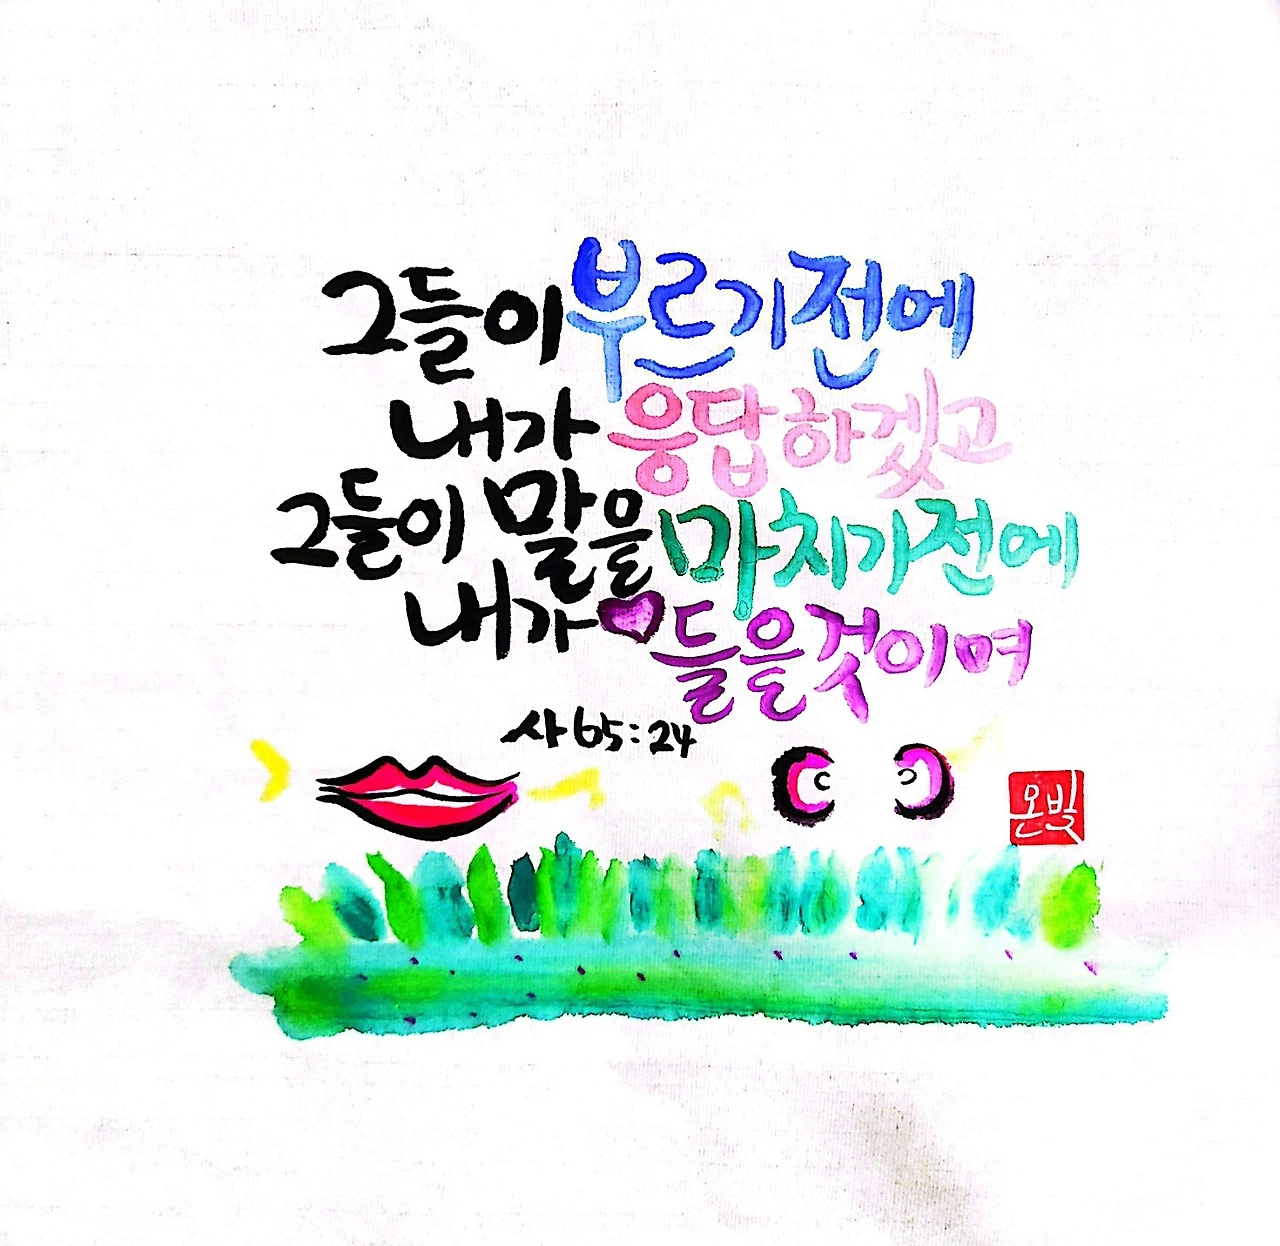 그들이 부르기 전에
내가 응답하겠고
그들이 말을 마치기 전에
내가 들을 것이며
사 65:24
온빛